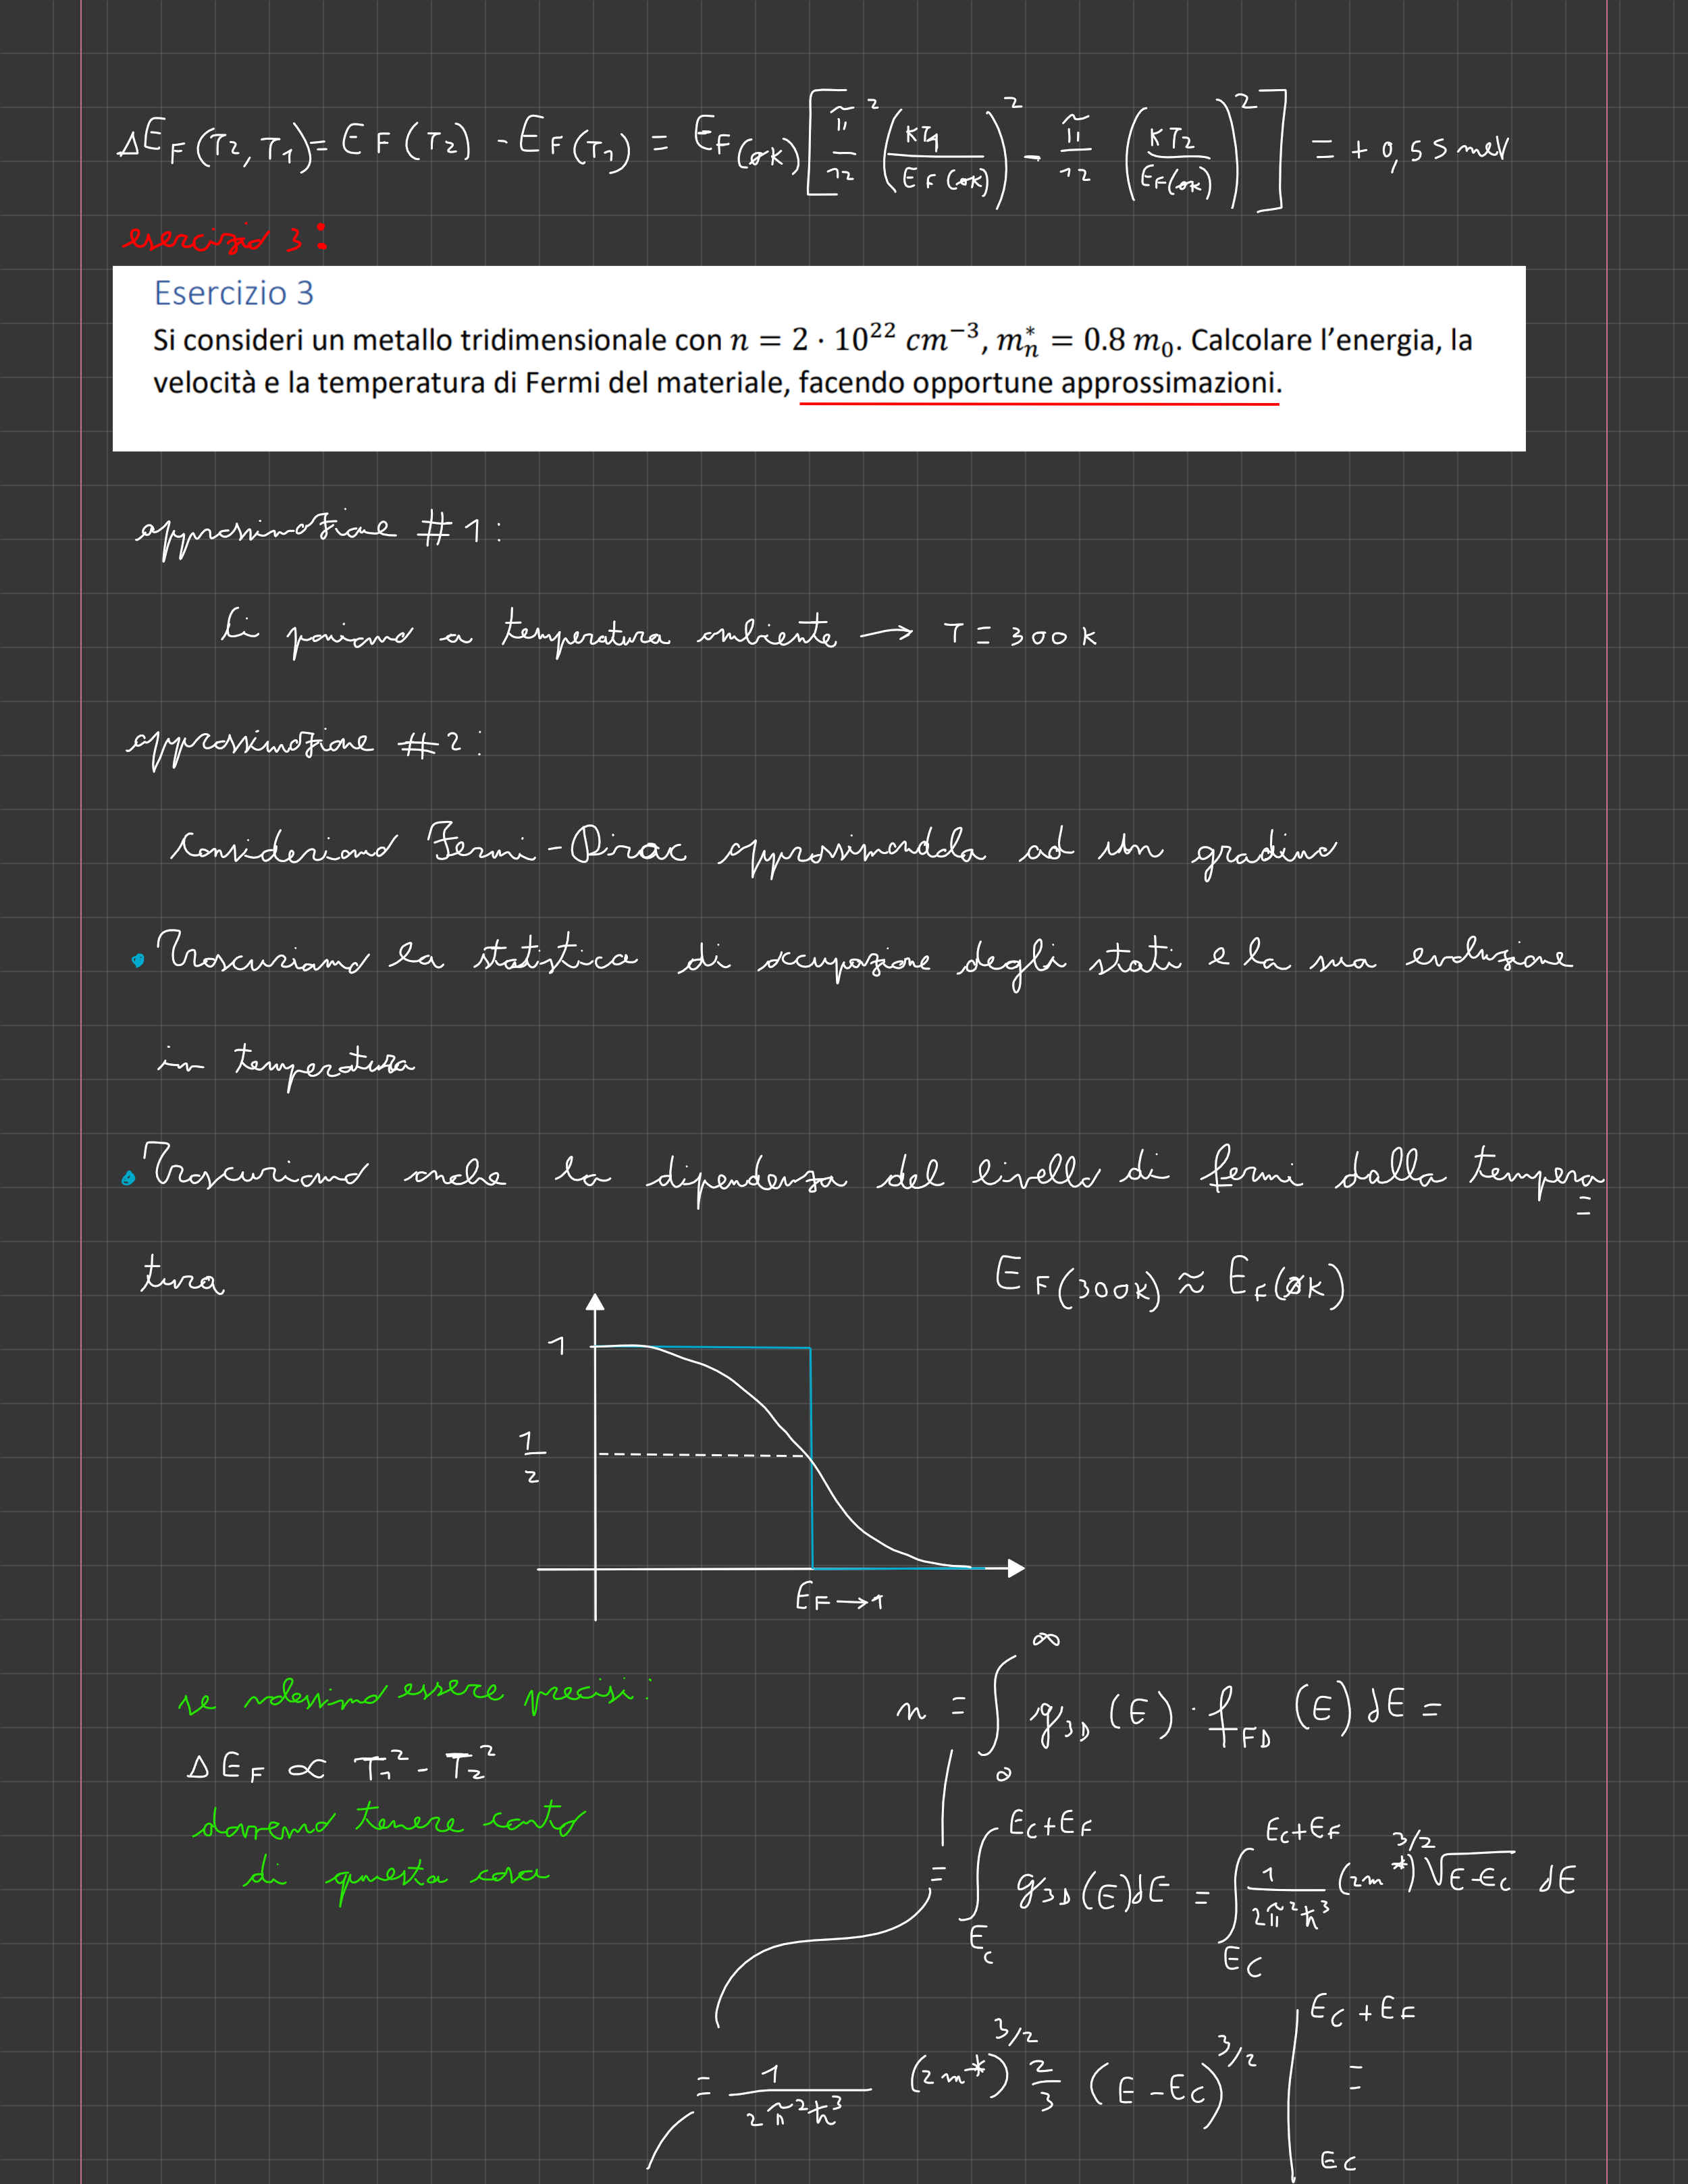 ΔE_F(T₂, T₁) = E_F(T₂) - E_F(T₁) = E_F(0K) [ π²/12 (KT₁/E_F(0K))² - π/12 (KT₂/E_F(0K))² ] = + 0,55 meV
esercizio 3:
Esercizio 3
Si consideri un metallo tridimensionale con n = 2 · 10²² cm⁻³, m*ₙ = 0.8 m₀. Calcolare l’energia, la
velocità e la temperatura di Fermi del materiale, facendo opportune approssimazioni.
approssimazione #1:
Ci poniamo a temperatura ambiente → T = 300 K
approssimazione #2:
consideriamo Fermi-Dirac approssimandola ad un gradino
• Trascuriamo la statistica di occupazione degli stati e la sua evoluzione
in temperatura
• Trascuriamo anche la dipendenza del livello di fermi dalla tempera=
tura E_F(300K) ≈ E_F(0K)
1
1/2
E_F → 1
se volessimo essere precisi:
ΔE_F ∝ T₁² - T₂²
dovremo tenere conto
di questa cosa
n = ∫₀^∞ g₃D(E) · f_FD(E) dE =
= ∫_{Ec}^{Ec+EF} g₃D(E)dE = ∫_{EC}^{Ec+EF} 1/(2π²ħ³) (2m*)^{3/2} √(E-Ec) dE
= 1/(2π²ħ³) (2m*)^{3/2} 2/3 (E-EC)^{3/2} |_{EC}^{EC+EF} =